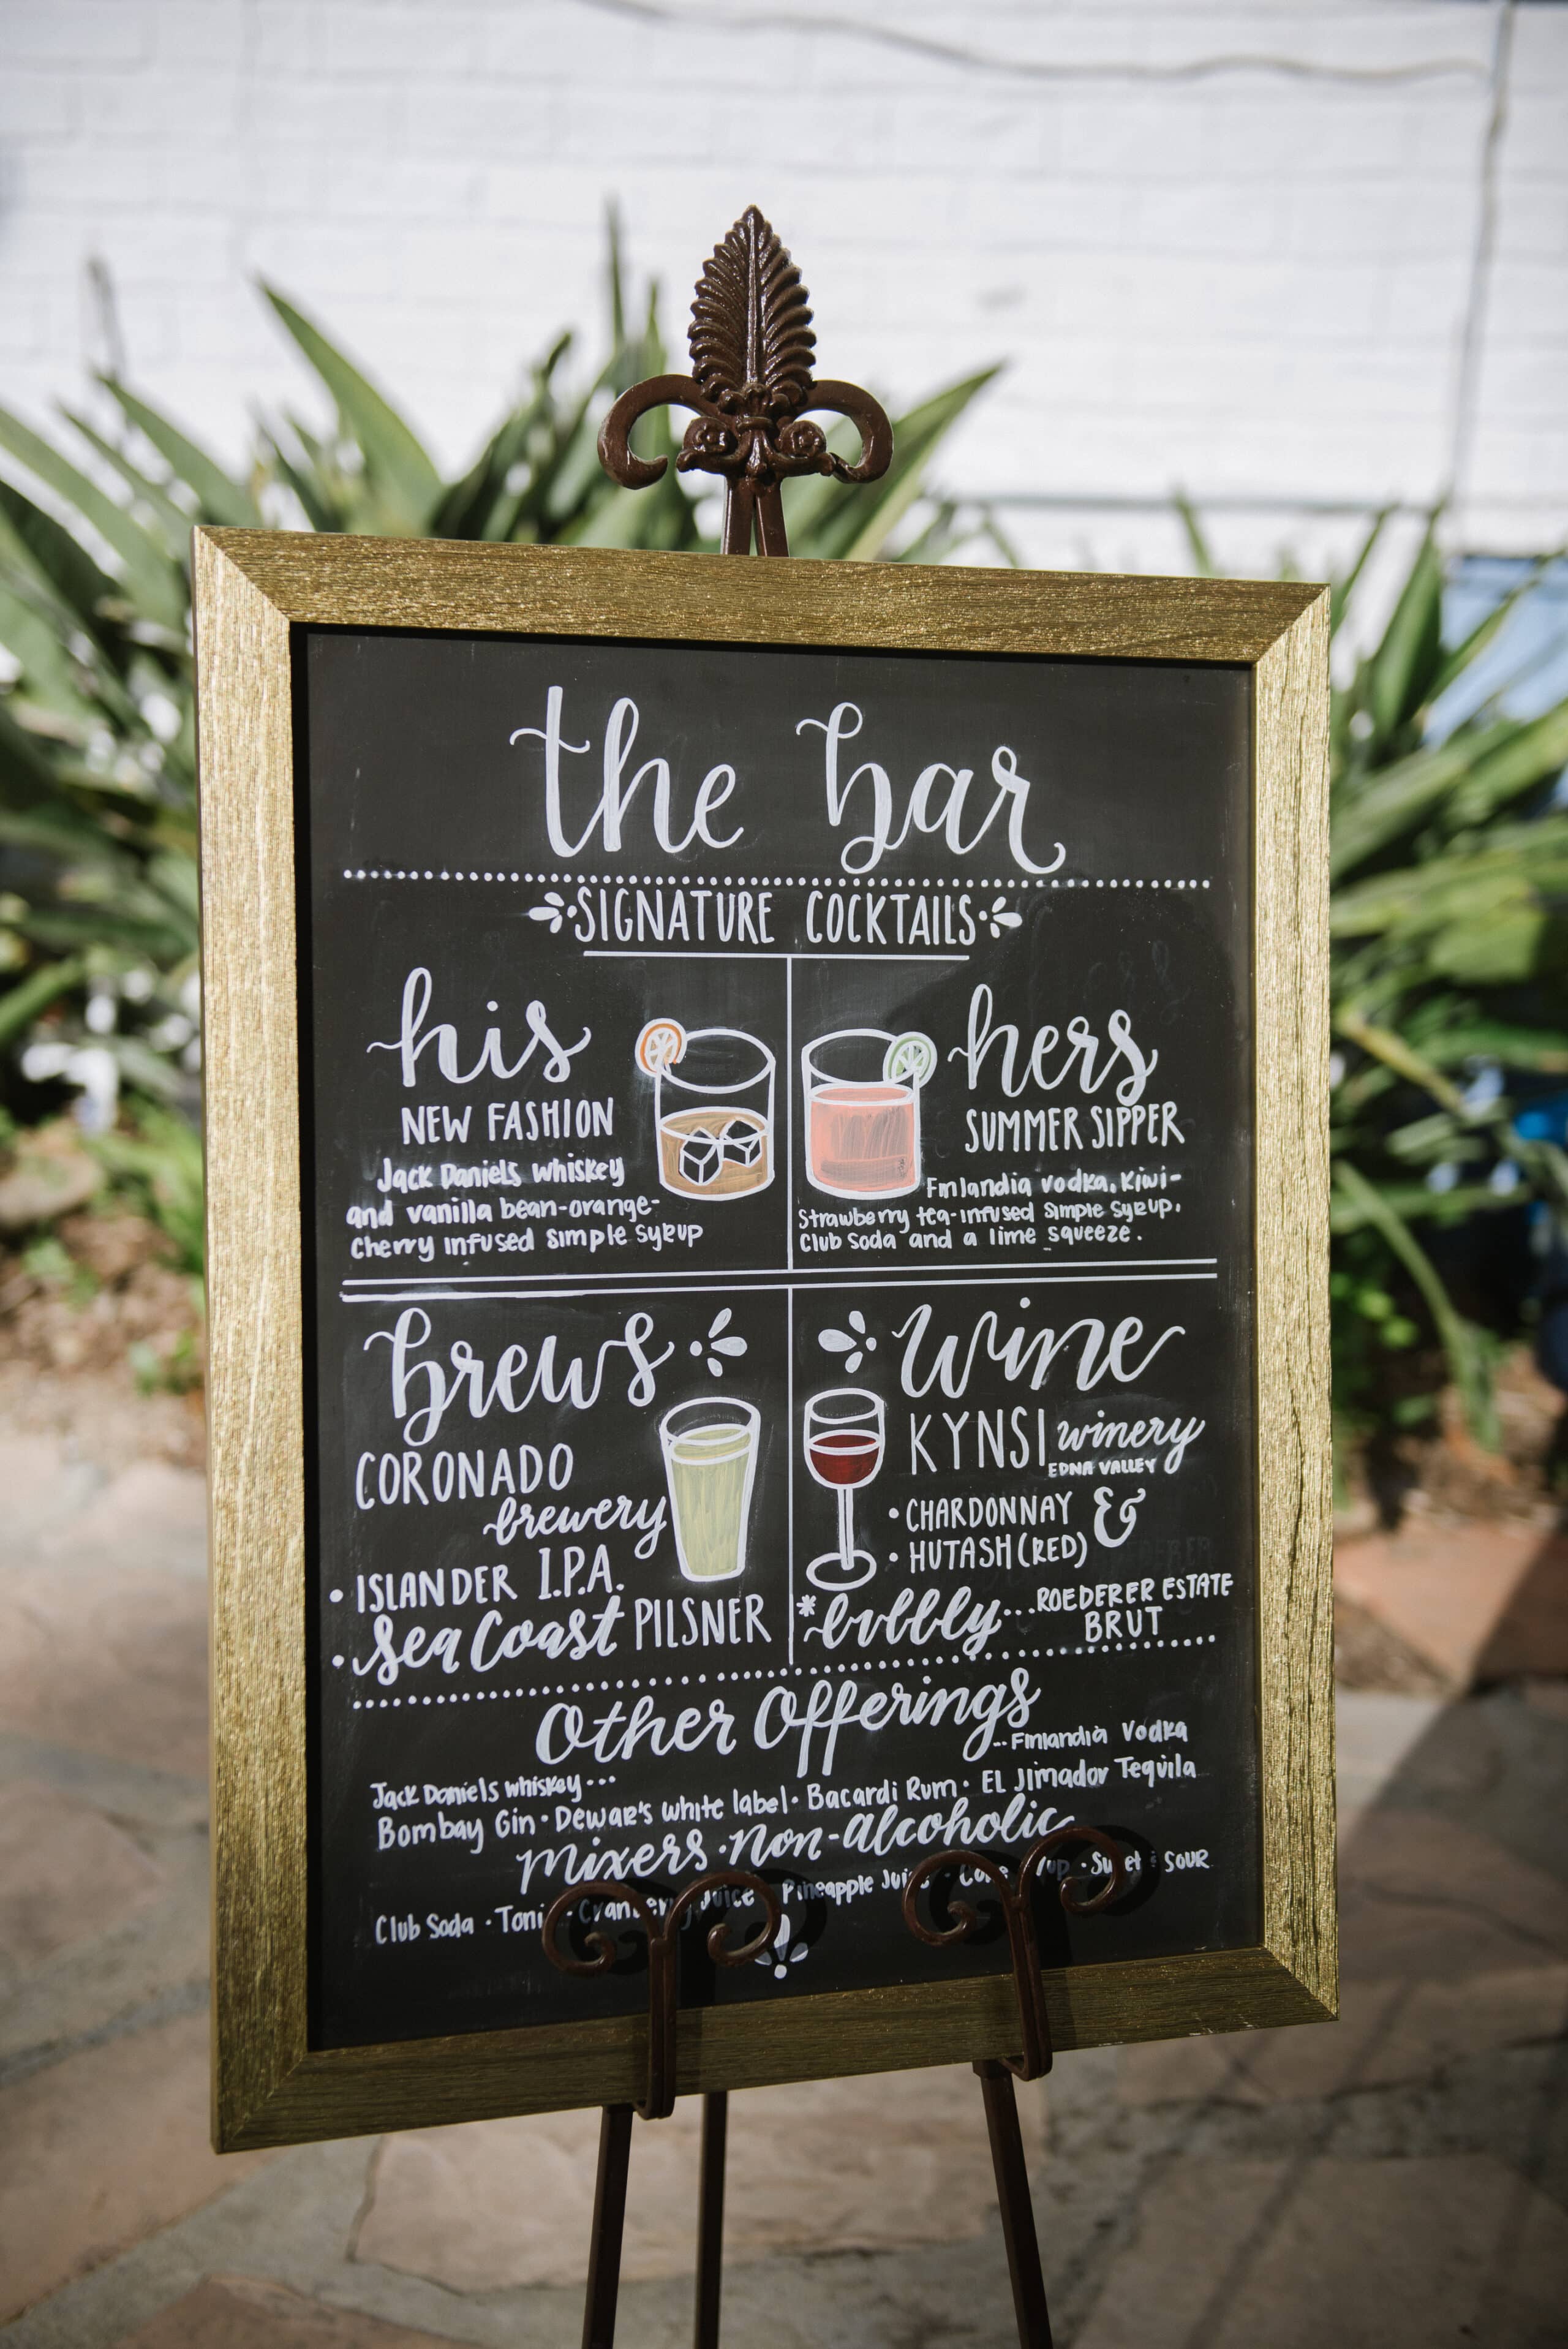 the bar
SIGNATURE COCKTAILS
his
NEW FASHION
Jack Daniels whiskey
and vanilla bean-orange-
Cherry infused simple syrup
hers
SUMMER SIPPER
Finlandia vodka, Kiwi-
Strawberry tea-infused simple syrup,
Club Soda and a lime squeeze.
brews
CORONADO
brewery
• ISLANDER I.P.A.
• Sea Coast PILSNER
wine
KYNSI winery
EDNA VALLEY
• CHARDONNAY &
• HUTASH (RED)
*bubbly...ROEDERER ESTATE
BRUT
Other Offerings
Jack Daniels whiskey... ..Finlandia Vodka
Bombay Gin • Dewar's white label • Bacardi Rum • EL Jimador Tequila
mixers • non-alcoholic
Club Soda • Cranberry Juice Pineapple Juice • Sweet & SOUR